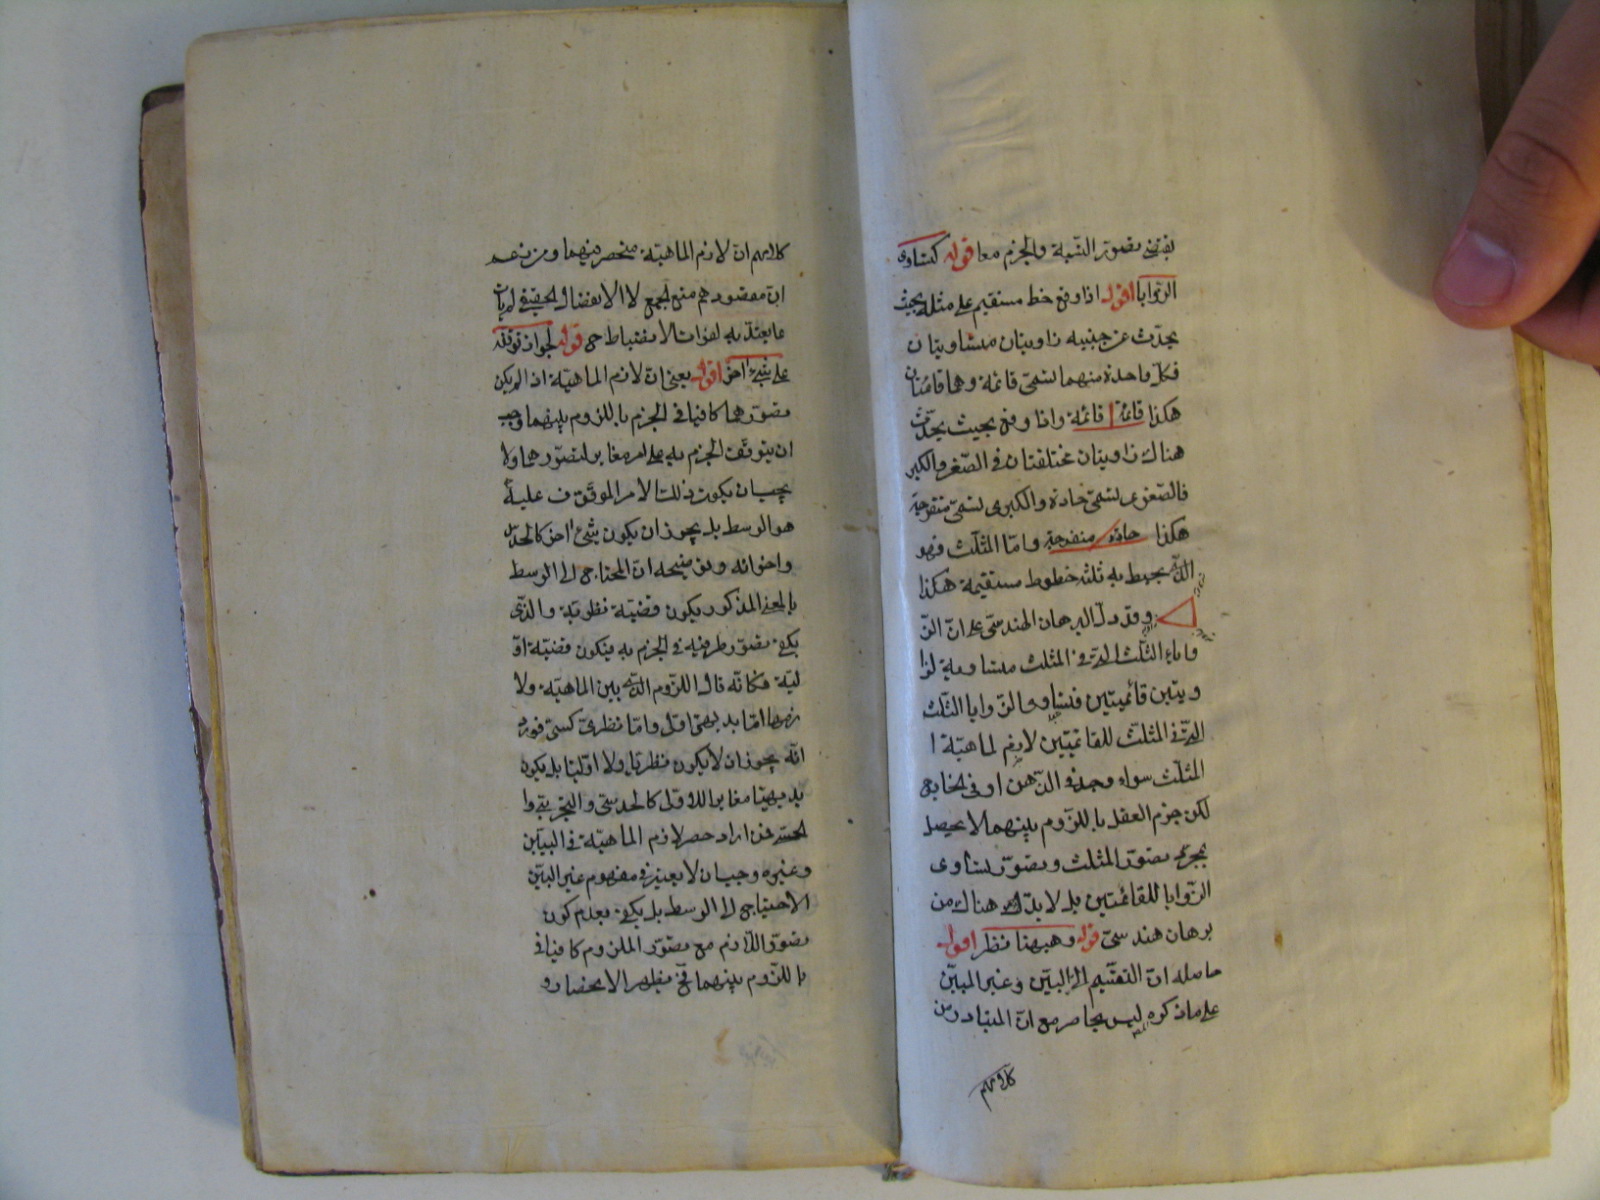 يقتضي تصور النسبة والجزم معا قوله كتساوى
الزوايا اقول اذا وقع خط مستقيم على مثله بحيث
يحدث عن جنبيه زاويتان متساويتان
فكل واحدة منهما تسمى قائمة وهما قائمتان
هكذا قائمة قائمة واذا وقع بحيث يحدث
هناك زاويتان مختلفتان في الصغر والكبر
فالصغرى تسمى حادة والكبرى تسمى منفرجة
هكذا حادة منفرجة واما المثلث فهو
الذى يحيط به ثلثة خطوط مستقيمة هكذا
وقد دل البرهان الهندسى على ان الز
وايا الثلث التى في المثلث مساوية لزا
ويتين قائمتين فتساوى الزوايا الثلث
التى في المثلث للقائمتين لازم لماهية ا
المثلث سواء وجد في الذهن او في الخارج
لكن جزم العقل باللزوم بينهما لا يحصل
بمجرد تصور المثلث وتصور تساوى
الزوايا للقائمتين بل لابد هناك من
برهان هندسى قوله وههنا نظر اقول
حاصله ان التقسيم الى البين وغير البين
على ما ذكوه ليس بحاصر مع ان المتبادر من
كلامهم
كلامهم ان لازم الماهية منحصر فيهما ومن زعم
ان مقصودهم منع الجمع لا الانفصال الحقيقي لم يات
ما يعتد به لفوات الانضباط ح قوله لجواز توقفه
على شئ اخر اقول يعنى ان لازم الماهية اذا لم يكن
تصورهما كافيا في الجزم باللزوم بينهما وجب
ان يتوقف الجزم به على امر مغاير لتصورهما ولا
يجب ان يكون ذلك الامر الموقوف عليه
هو الوسط بل يجوز ان يكون شئ اخر كالحدس
واخواته وتوضيحه ان المحتاج الى الوسط
بالمعنى المذكور يكون قضية نظرية والذى
يكفى تصور طرفيه في الجزم به يكون قضية او
لية فكانه قال اللزوم الذى بين الماهية ولا
زمها اما بديهى اولى واما نظرى كسبى فورد
انه يجوز ان لا يكون نظريا ولا اوليا بل يكون
بديهيا مغايرا للاولى كالحدسى والتجربى وا
لحسى فمن اراد حصر لازم الماهية في البين
وغيره وجب ان لا يعتبر في مفهوم غير البين
الاحتياج الى الوسط بل يكفى بعدم كون
تصور اللازم مع تصور الملزوم كافيا في
باللزوم بينهما فح يظهر الانحصار و